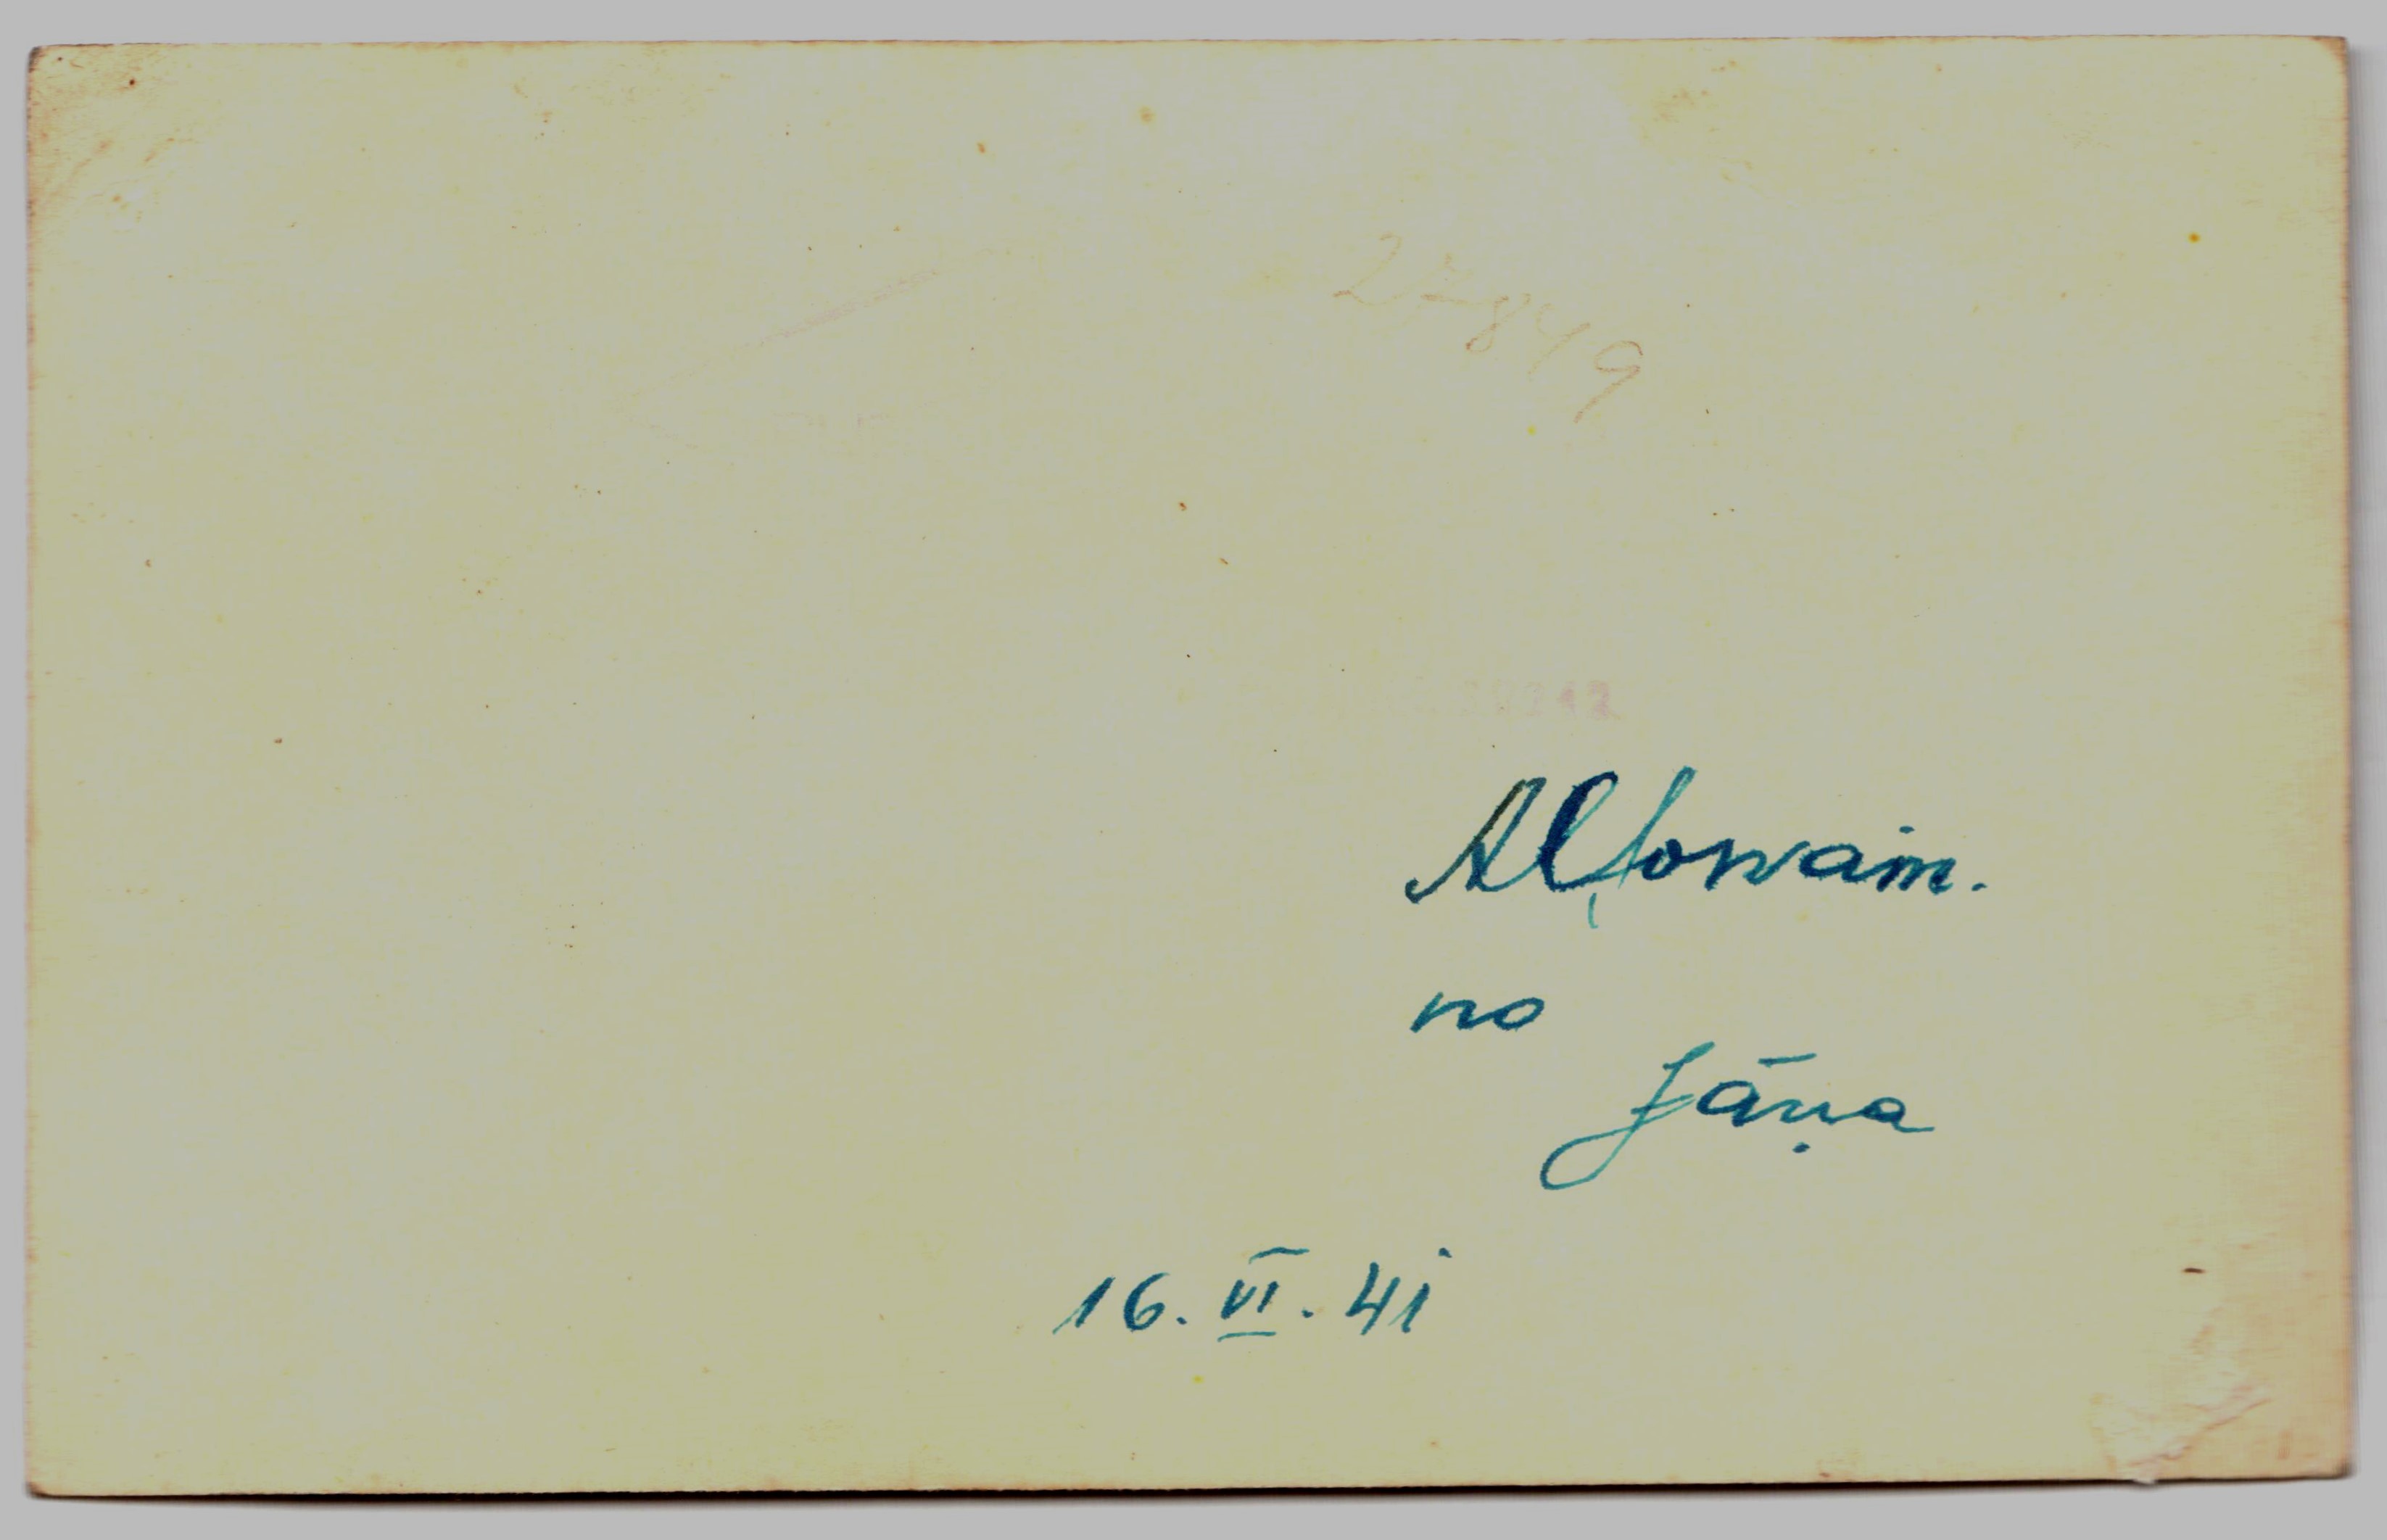 27849
Alfonam.
no
Jāņa
16. VI. 41